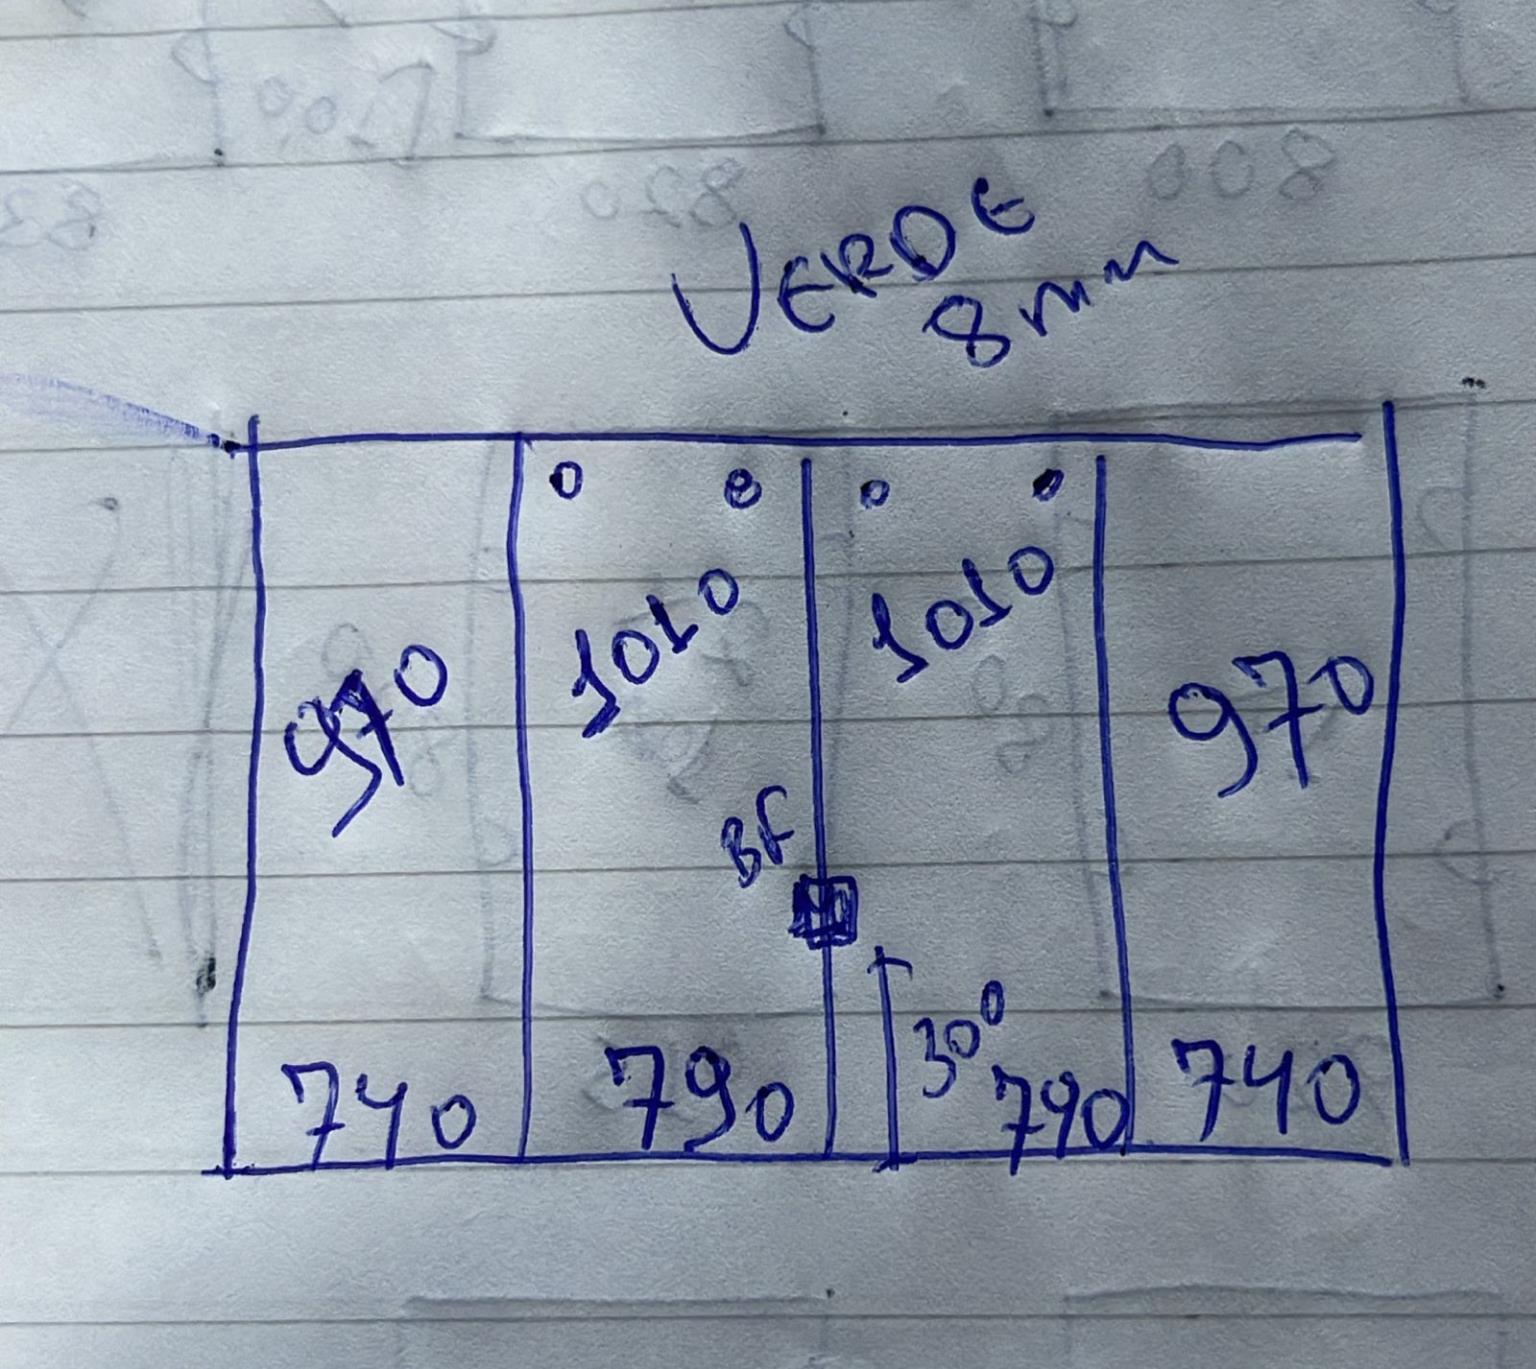 VERDE
8mm
1010
1010
970
970
BF
300
740
790
790
740